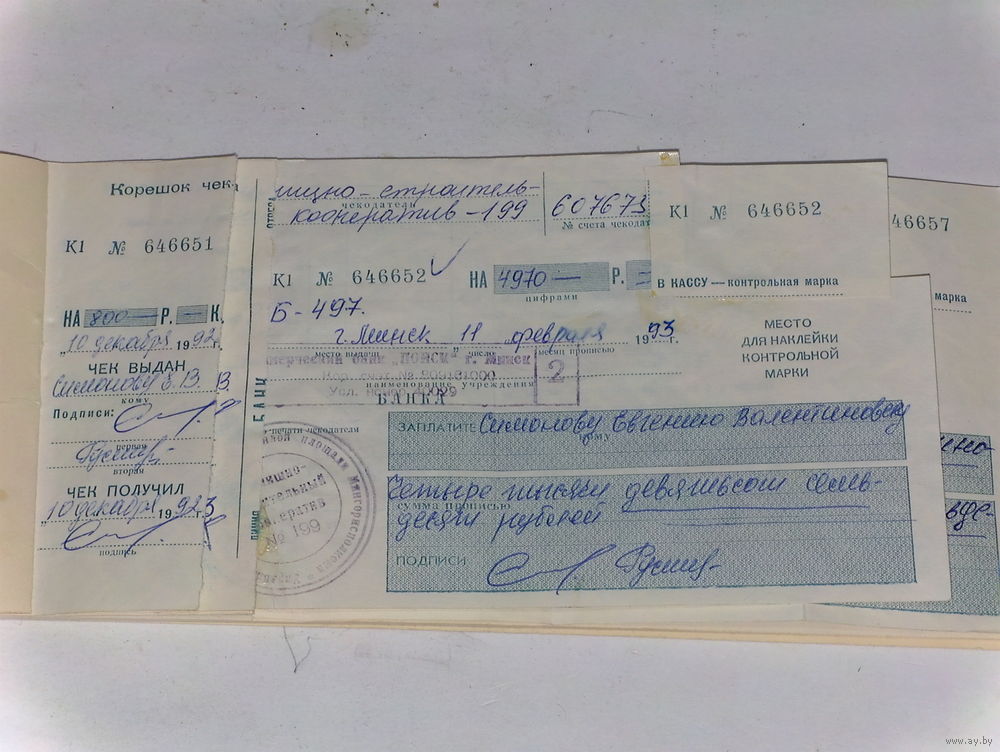 Корешок чека
К1 № 646651
НА 800— Р. — К.
„10 декабря 1992г.
ЧЕК ВЫДАН
Симонову Е.В.
кому
Подписи:
первая
вторая
ЧЕК ПОЛУЧИЛ
„10 декабря 1992г.
подпись
ищно-строитель-
чекодатель
кооператив-199
607673
№ счета чекодат
К1 № 646652
НА 4970— Р. —
цифрами
Б-497.
г. Минск 11 февраля 1993г.
место выдачи число месяц прописью
мерческий банк "ПОИСК" г. Минск
Кор. счет. №
2
наименование учреждения
БАНКА
печати чекодателя
№ 199
ЗАПЛАТИТЕ Симонову Евгению Валентиновичу
кому
Четыре тысячи девятьсот семь-
сумма прописью
десят рублей
ПОДПИСИ
К1 № 646652
В КАССУ — контрольная марка
МЕСТО
ДЛЯ НАКЛЕЙКИ
КОНТРОЛЬНОЙ
МАРКИ
46657
марка
www.ay.by